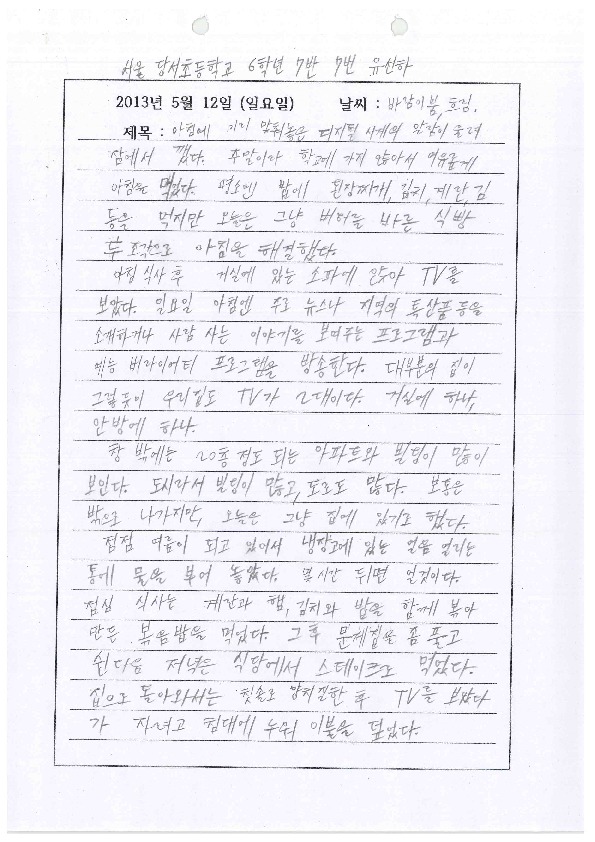 서울 당서초등학교 6학년 7반 7번 유산하
2013년 5월 12일 (일요일) 날씨 : 바람이붐, 흐림.
제목 : 아침에 미리 맞춰놓은 디지털 시계의 알람이 울려
잠에서 깼다. 주말이라 학교에 가지 않아서 여유롭게
아침을 먹었다. 평소엔 밥에 된장찌개, 김치, 계란, 김
등을 먹지만 오늘은 그냥 버터를 바른 식빵
두 조각으로 아침을 해결했다.
아침 식사 후 거실에 있는 소파에 앉아 TV를
보았다. 일요일 아침엔 주로 뉴스나 지역의 특산품 등을
소개하거나 사람 사는 이야기를 보여주는 프로그램과
예능 버라이어티 프로그램을 방송한다. 대부분의 집이
그렇듯이 우리집도 TV가 2대이다. 거실에 하나,
안방에 하나.
창 밖에는 20층 정도 되는 아파트와 빌딩이 많이
보인다. 도시라서 빌딩이 많고, 도로도 많다. 보통은
밖으로 나가지만, 오늘은 그냥 집에 있기로 했다.
점점 여름이 되고 있어서 냉장고에 있는 얼음 얼리는
통에 물을 부어 놓았다. 몇 시간 뒤면 얼것이다.
점심 식사는 계란과 햄, 김치와 밥을 함께 볶아
만든 볶음밥을 먹었다. 그 후 문제집을 좀 풀고
쉰다음 저녁은 식당에서 스테이크로 먹었다.
집으로 돌아와서는 칫솔로 양치질한 후 TV를 보았다
가 자려고 침대에 누워 이불을 덮었다.